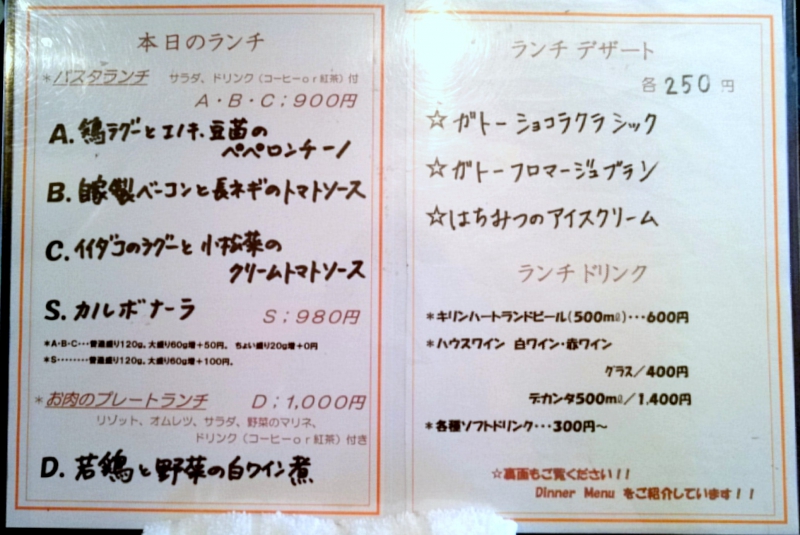 本日のランチ
*パスタランチ サラダ、ドリンク（コーヒーor紅茶）付
A・B・C；900円
A. 鶏ラグーとエノキ、豆苗の
ペペロンチーノ
B. 自家製ベーコンと長ネギのトマトソース
C. イイダコのラグーと小松菜の
クリームトマトソース
S. カルボナーラ
S；980円
*A・B・C・・・普通盛り120g。大盛り60g増+50円。ちょい盛り20g増+0円
*S・・・・・・・・普通盛り120g。大盛り60g増+100円。
*お肉のプレートランチ D；1,000円
リゾット、オムレツ、サラダ、野菜のマリネ、
ドリンク（コーヒーor紅茶）付き
D. 若鶏と野菜の白ワイン煮
ランチ デザート
各 250 円
☆ガトーショコラクラシック
☆ガトーフロマージュブラン
☆はちみつのアイスクリーム
ランチ ドリンク
*キリンハートランドビール(500mℓ)・・・600円
*ハウスワイン 白ワイン・赤ワイン
グラス／400円
デカンタ500mℓ／1,400円
*各種ソフトドリンク・・・300円～
☆裏面もご覧ください！！
Dinner Menu をご紹介しています！！